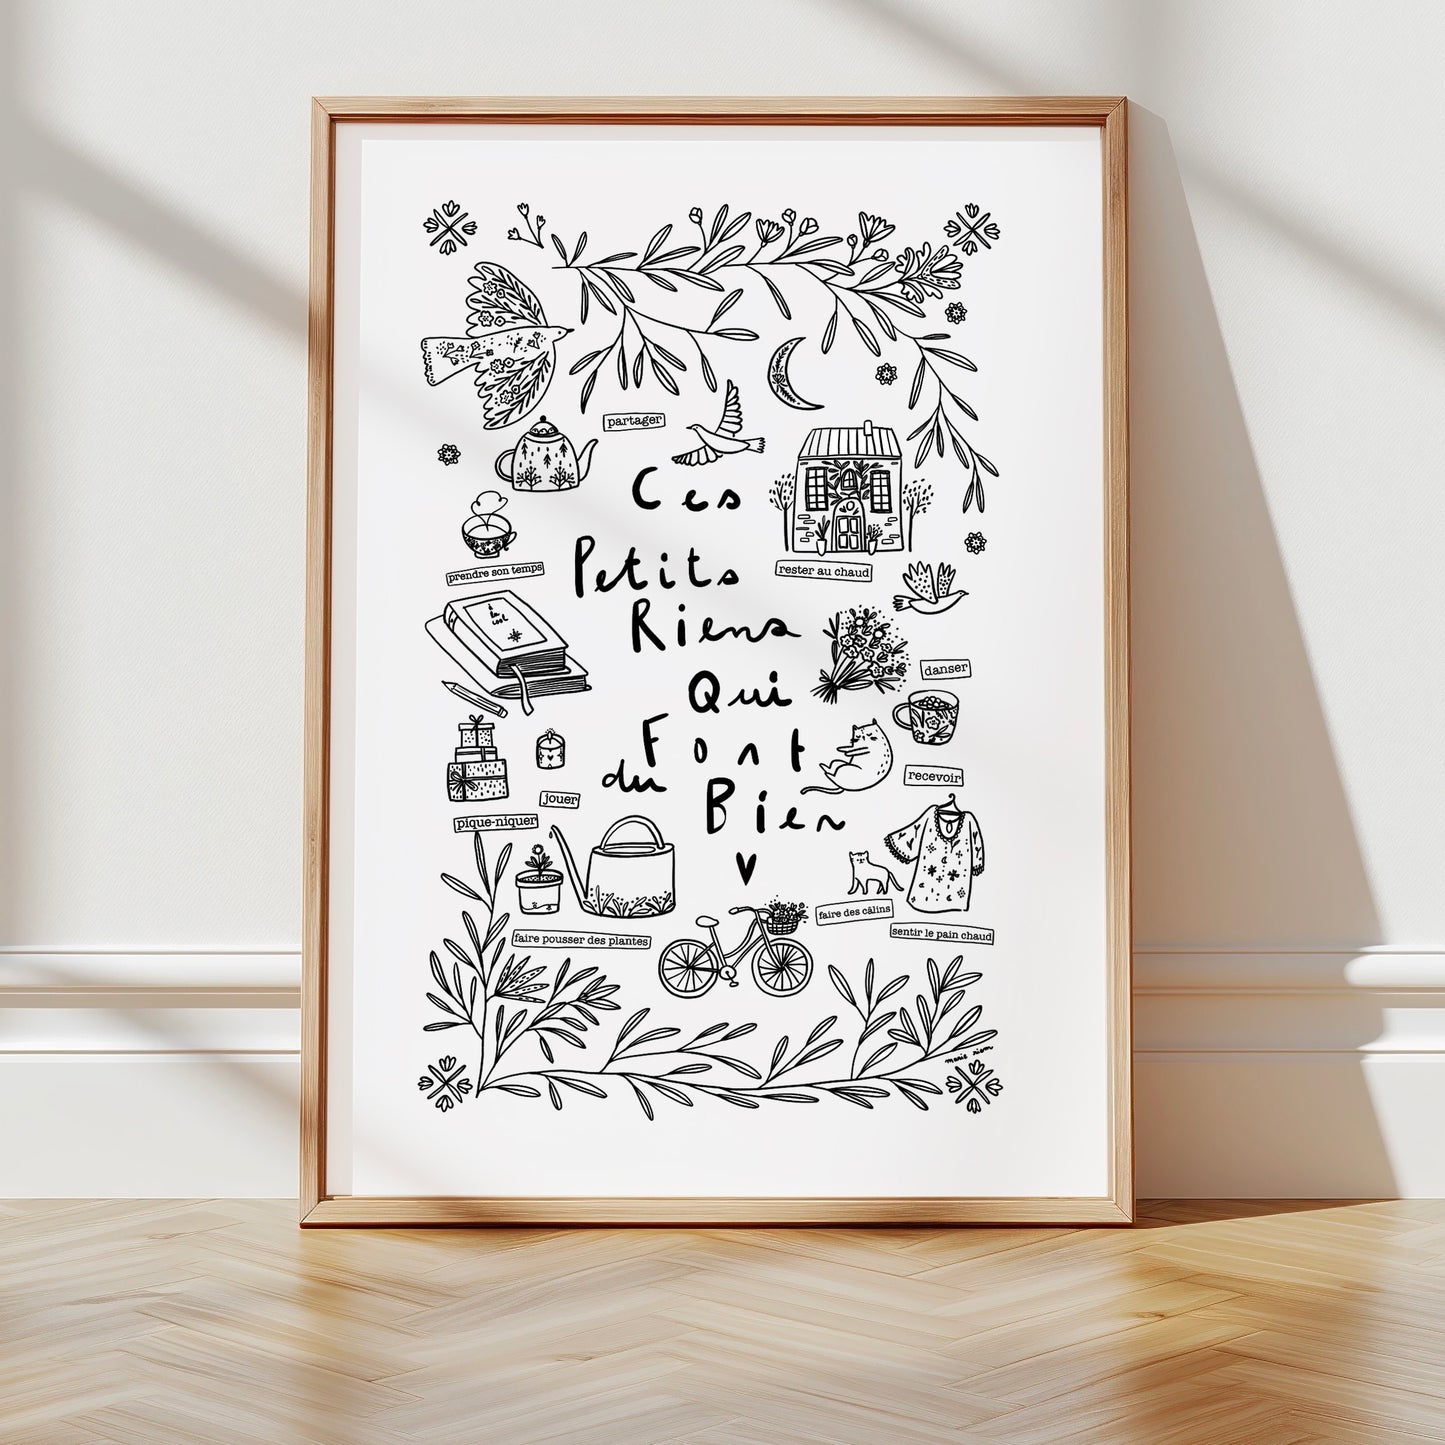 partager
Ces
Petits
Riens
Qui
Font
du
Bien
prendre son temps
rester au chaud
à
la
cool
danser
recevoir
jouer
pique-niquer
faire des câlins
sentir le pain chaud
faire pousser des plantes